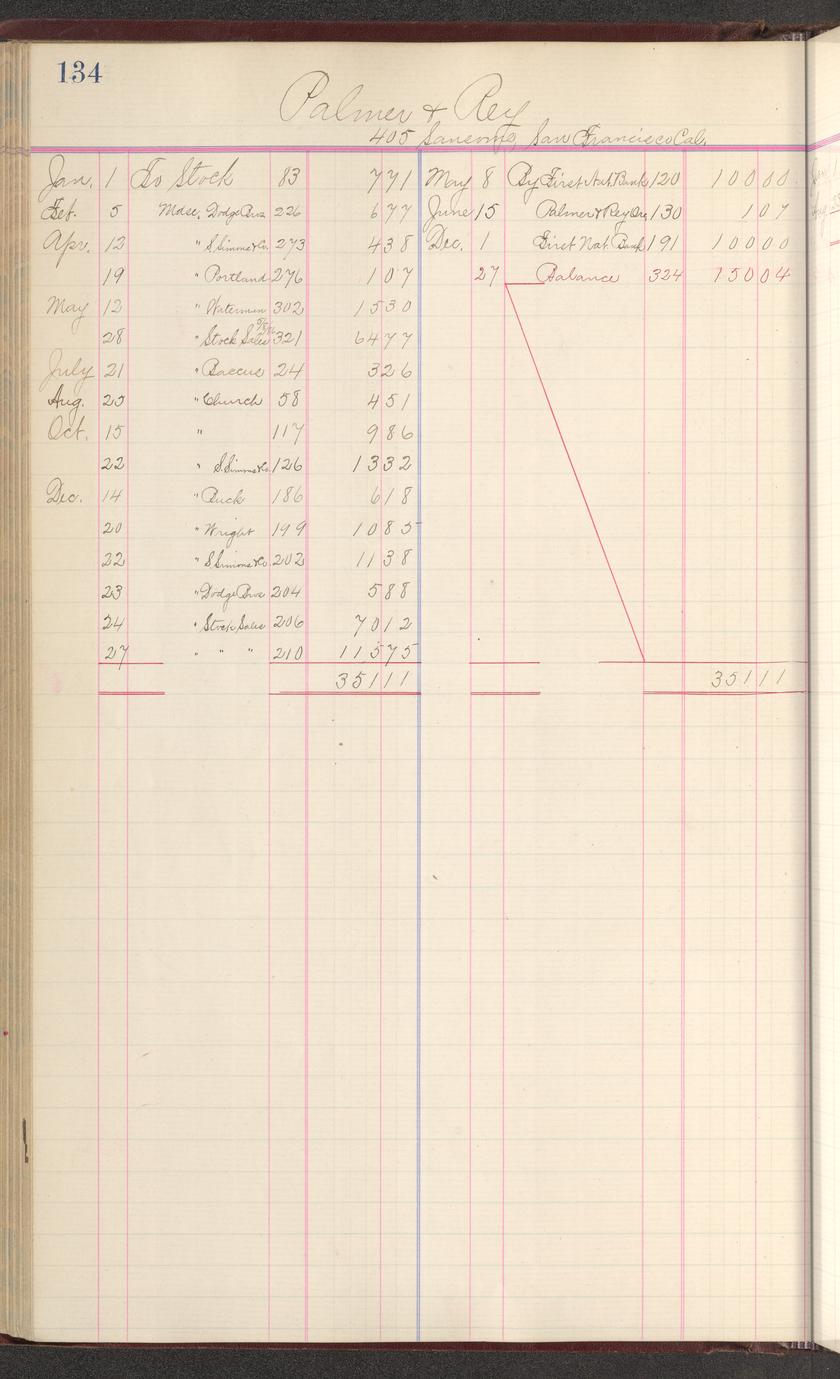 134
Palmer & Rey
405 Sansome, San Francisco Cal.
Jan. 1 To Stock 83 771 May 8 By First Nat. Bank 120 10000
Feb. 5 Mdse. Dodge Bros 226 677 June 15 Palmer & Rey Or. 130 107
Apr. 12 " S. Simms & Co. 273 438 Dec. 1 First Nat. Bank 191 10000
19 " Portland 276 107 27 Balance 324 15004
May 12 " Waterman 302 1530
28 " Stock Sales 321 6477
July 21 " Baccus 24 326
Aug. 25 " Church 58 451
Oct. 15 " 117 986
22 " S. Simms & Co. 126 1332
Dec. 14 " Buck 186 618
20 " Wright 199 1085
22 " S. Simms & Co. 202 1138
23 " Dodge Bros 204 588
24 " Stock Sales 206 7012
27 " " " 210 11575
35111 35111